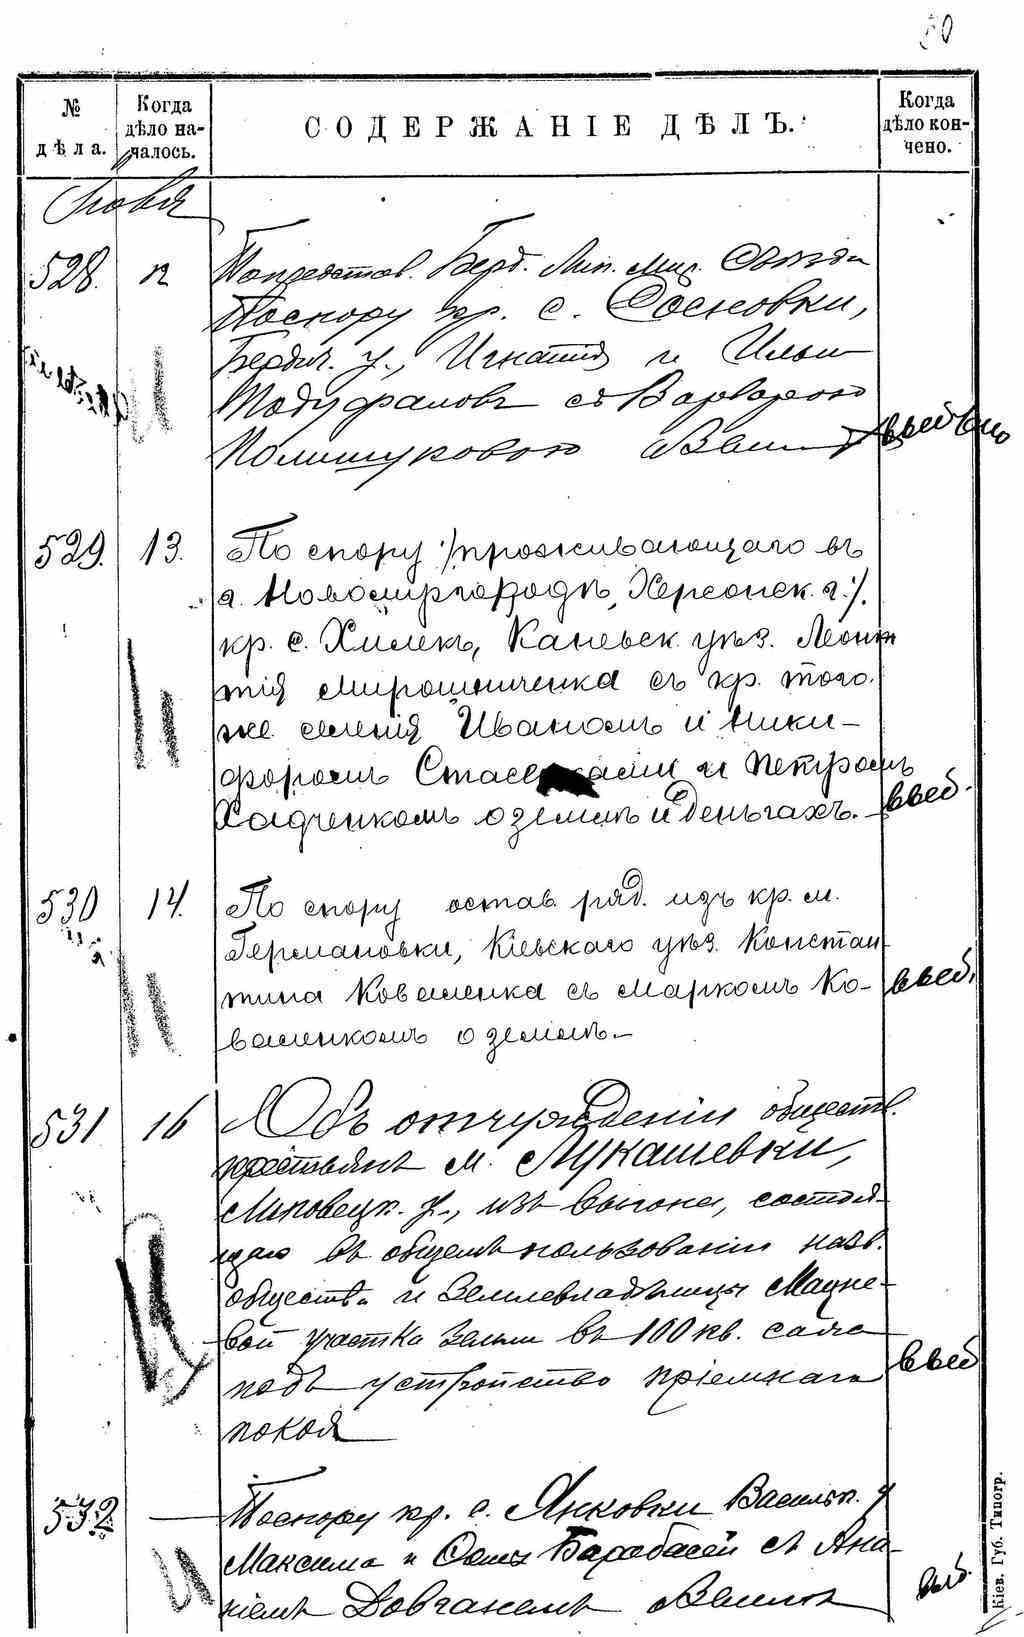 50
№ дѣла.
Когда дѣло на-
чалось.
СОДЕРЖАНІЕ ДѢЛЪ.
Когда дѣло кон-
чено.
528.
По представ. Берд. Мир. Съѣзда
По спору кр. с. Сосновки,
Бердич. у., Игнатія и Ильи
съ Варварою
Полищуковою о землѣ
529. 13. По спору /:проживающаго въ
г. Новомиргородѣ, Херсонск. г:/.
кр. с. Хмелек, Каневск. уѣз. Леон-
тія Мирошниченка съ кр. того
же селенія Иваномъ и Ники-
форомъ и Петромъ
о землѣ и деньгахъ.
530 14. По спору остав. ряд. изъ кр. м.
Германовки, Кіевскаго уѣз. Констан-
тина Коваленка съ Маркомъ Ко-
валенкомъ о землѣ.
531 16 Объ отчужденіи обществ.
крестьянъ м. Лукашевки,
Липовецк. у., изъ выгона, состоя-
щаго въ общемъ пользованіи назв.
общества и землевладѣлицы Мацне-
вой участка земли въ 100 кв. саж
подъ устройство пріемнаго
покоя
532 — По спору кр. с. Янковки Васильк. у
Максима и Барабасей съ Ана-
ніемъ Довганемъ о землѣ
Кіев. Губ. Типогр.